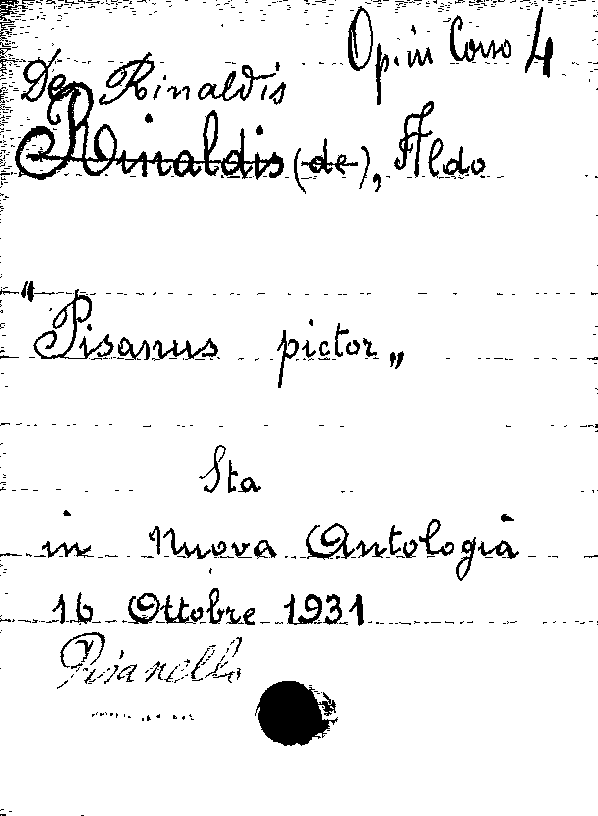 Op. in Corso 4
De Rinaldis
Rinaldis (de), Aldo
"Pisanus pictor„
Sta
in Nuova Antologia
16 Ottobre 1931
Pisanello